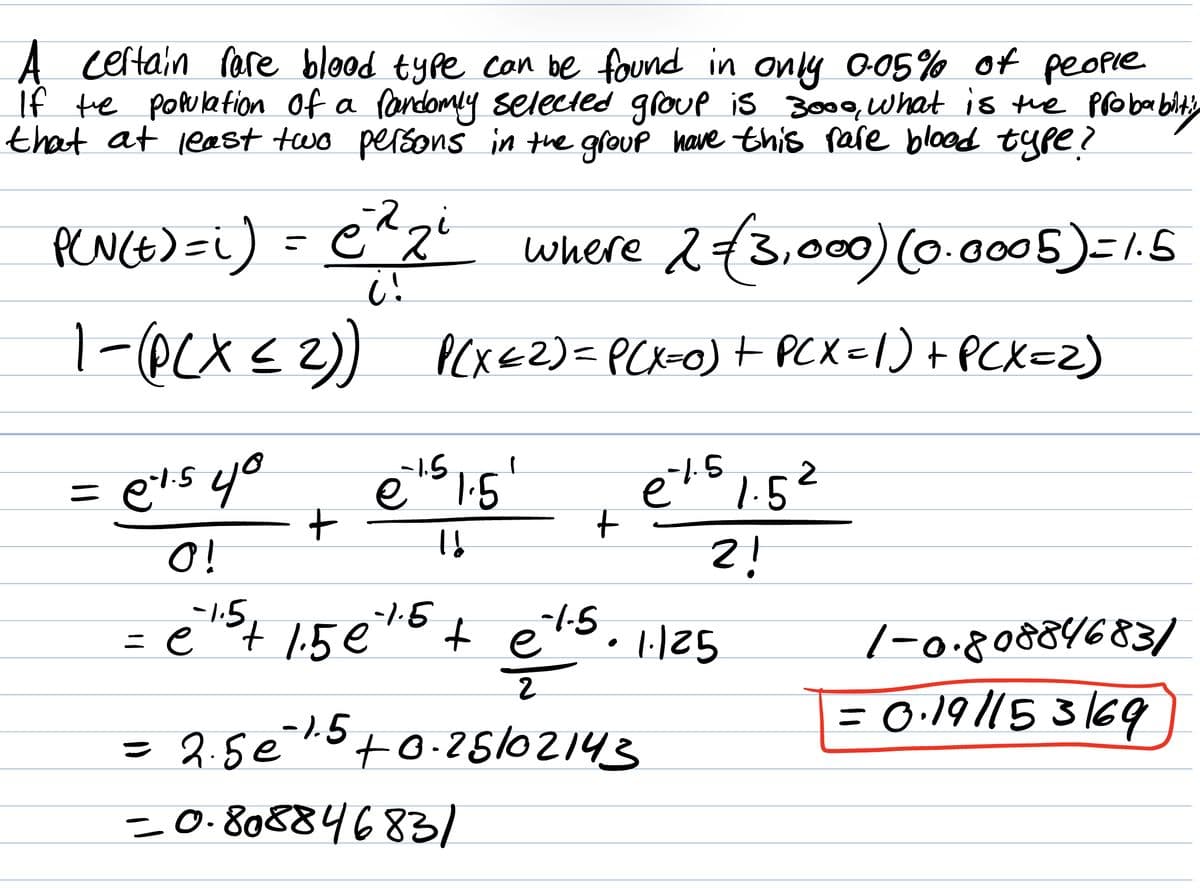 A certain rare blood type can be found in only 0.05% of people
If the population of a randomly selected group is 3000, what is the probability
that at least two persons in the group have this rare blood type?
P(N(t)=i) = e^-λ λ^i / i! where λ=(3,000)(0.0005)=1.5
1-(P(X ≤ 2)) P(X≤2)= P(X=0) + P(X=1) + P(X=2)
= e^-1.5 4^0 / 0! + e^-1.5 1.5^1 / 1! + e^-1.5 1.5^2 / 2!
= e^-1.5 + 1.5e^-1.5 + e^-1.5 / 2 · 1.125 1-0.808846831
= 2.5e^-1.5 + 0.25102143 = 0.191153169
= 0.808846831